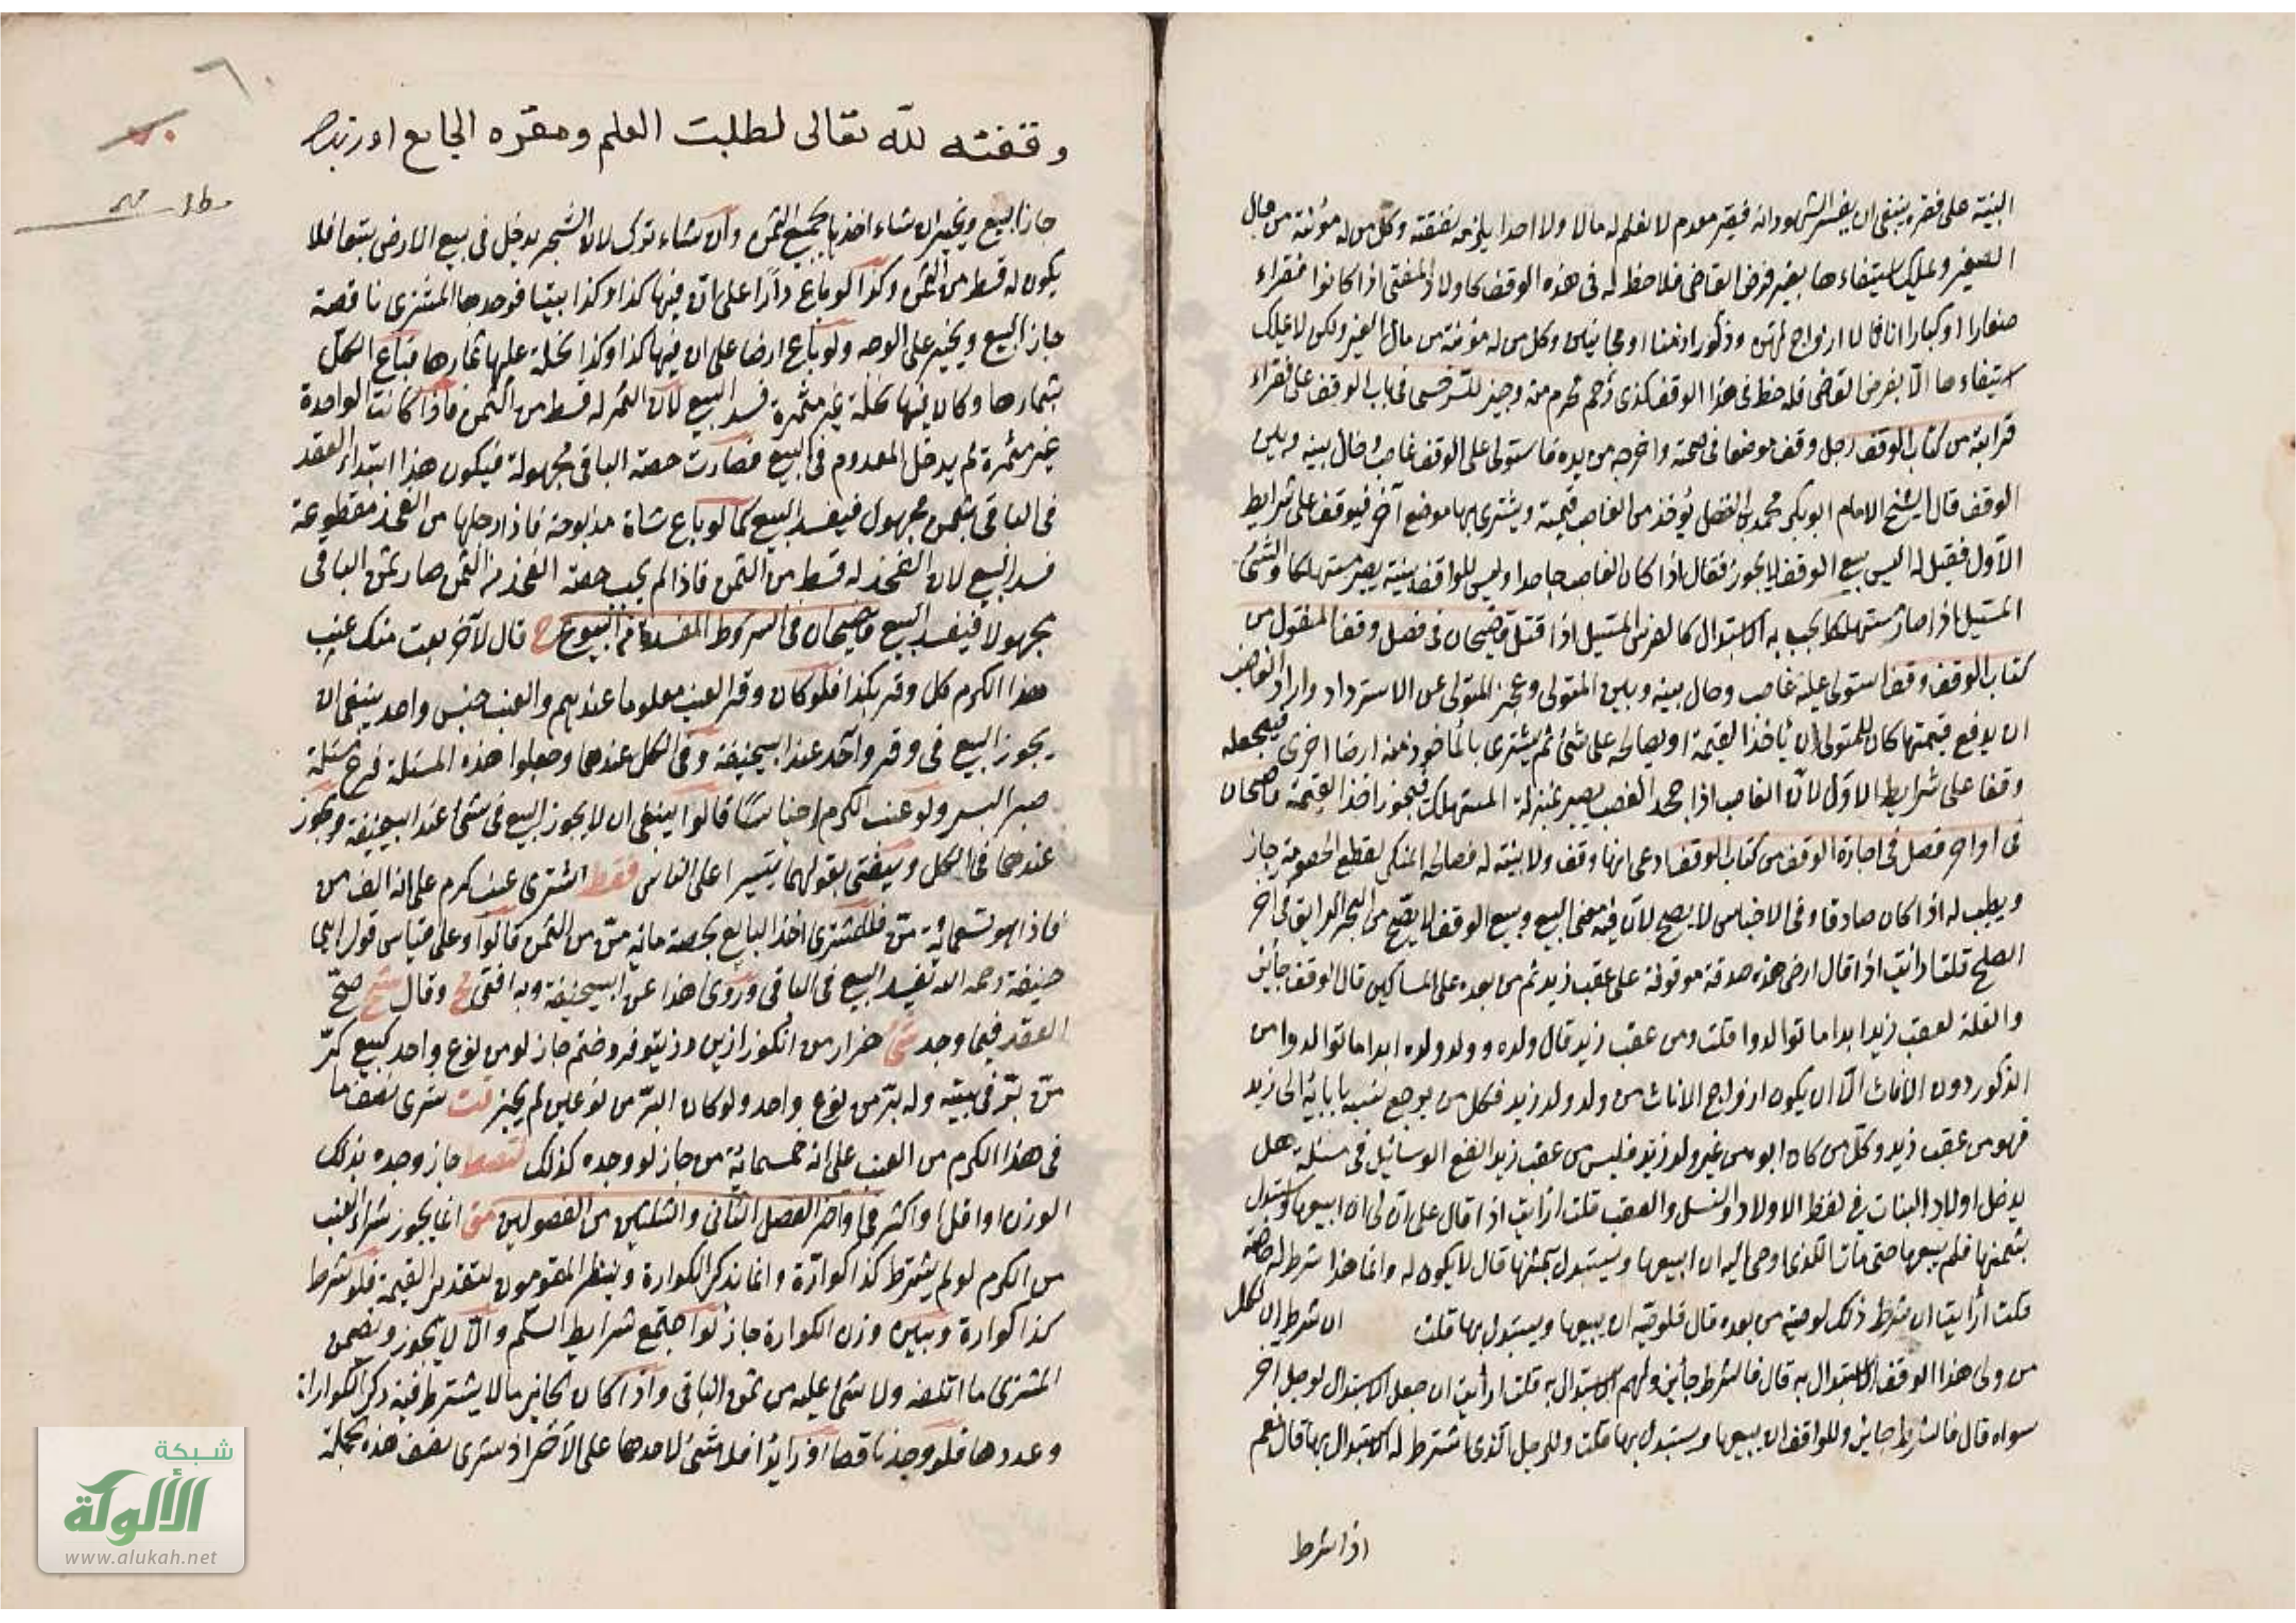 البينة على فقره ينبغى ان يفسر الشهود انه فقير معدم لا نعلم له مالا ولا احدا يلزمه نفقته وكل من له مؤنة من مال
الصغير ويملك استيفاءها بغير فرض القاضى فلا حظ له فى هذه الوقف كاولاد المفتى اذا كانوا فقراء
صغارا او كبارا اناثا لا ازواج لهن وذكورا زمنا او مجانين وكل من له مؤنة من مال الغير ولكن لا يملك
استيفاءها الا بفرض القاضى فله حظ فى هذا الوقف كذى رحم محرم منه وجيز للسرخسى فى باب الوقف على فقراء
قرابته من كتاب الوقف رجل وقف موضعا فى صحته واخرجه من يده فاستولى على الوقف غاصب وحال بينه وبين
الوقف قال الشيخ الامام ابو بكر محمد بن الفضل يؤخذ من الغاصب قيمته ويشترى بها موضع آخر فيوقف على شرايط
الاول فقيل له اليس بيع الوقف لا يجوز فقال اذا كان الغاصب جاحدا وليس للواقف بينة يصير مستهلكا والشئ
المسبل اذا صار مستهلكا يجب به الاستبدال كالفرس المسبل اذا قتل قاضيخان فى فصل وقف المنقول من
كتاب الوقف وقف استولى عليه غاصب وحال بينه وبين المتولى وعجز المتولى عن الاسترداد واراد الغاصب
ان يدفع قيمتها كان للمتولى ان يأخذ القيمة او يصالحه على شئ ثم يشترى بالمأخوذ منه ارضا اخرى فيجعله
وقفا على شرايط الاول لان الغاصب اذا جحد الغصب يصير بمنزلة المستهلك فيجوز اخذ القيمة قاضيخان
فى اواخر فصل فى اجارة الوقف من كتاب الوقف ادعى انها وقف ولا بينة له فصالحه المنكر لقطع الخصومة جاز
ويطيب له اذا كان صادقا وفى الاجناس لا يصح لان فيه معنى البيع وبيع الوقف لا يصح من البحر الرايق فى اخر
الصلح قلت ارأيت اذا قال ارضى هذه صدقة موقوفة على عقب زيد ثم من بعده على المساكين قال الوقف جائز
والغلة لعقب زيد ابدا ما توالدوا قلت ومن عقب زيد قال ولده وولد ولده ابدا ما توالدوا من
الذكور دون الاناث الا ان يكون ازواج الاناث من ولد ولد زيد فكل من يرجع نسبه بابائه الى زيد
فهو من عقب زيد وكل من كان ابوه من غير ولد زيد فليس من عقب زيد انفع الوسائل فى مسئلة هل
يدخل اولاد البنات فى لفظ الاولاد والنسل والعقب قلت ارأيت اذا قال على ان لى ان ابيعها واستبدل
بثمنها فلم يبعها حتى مات الذى اوصى اليه ان ابيعها ويستبدل بثمنها قال لا يكون له وانما هذا شرط له خاصة
قلت أرأيت ان شرط ذلك لوصيه من بعده قال فلوصيه ان يبيعها ويستبدل بها قلت ان شرط ان لكل
من ولى هذا الوقف الاستبدال به قال فالشرط جائز ولهم الاستبدال به قلت ارأيت ان جعل الاستبدال لرجل اخر
سواه قال فالشرط جايز وللواقف ان يبيعها ويستبدل بها قلت وللرجل الذى اشترط له الاستبدال بها قال نعم
اذا شرط
٦٠
وقفته لله تعالى لطلبت العلم ومقره الجامع
جاز البيع ويخير ان شاء اخذ بجميع الثمن وان شاء ترك لان الشجر يدخل فى بيع الارض تبعا فلا
يكون له قسط من الثمن وكذا لو باع دارا على ان فيها كذا وكذا بيتا فوجدها المشترى ناقصة
جاز البيع ويخير على الوجه ولو باع ارضا على ان فيها كذا وكذا نخلة عليها ثمارها فباع الكل
بثمارها وكان فيها نخلة غير مثمرة فسد البيع لان الثمر له قسط من الثمن فاذا كانت الواحدة
غير مثمرة لم يدخل المعدوم فى البيع فصارت حصة الباقى مجهولة فيكون هذا ابتداء العقد
فى الباقى بثمن مجهول فيفسد البيع كما لو باع شاة مذبوحة فاذا رجلها من الفخذ مقطوعة
فسد البيع لان الفخذ له قسط من الثمن فاذا لم يجب حصة الفخذ من الثمن صار ثمن الباقى
مجهولا فيفسد البيع قاضيخان فى الشروط المفسدة من البيوع ح قال لآخر بعت منك عنب
هذا الكرم كل وقر بكذا فلو كان وقر العنب معلوما عندهم والعنب جنس واحد ينبغى ان
يجوز البيع فى وقر واحد عند ابيحنيفة وفى الكل عندهما وجعلوا هذه المسئلة فرع مسئلة
صبر البر ولو عنب الكرم اجناسا قالوا ينبغى ان لا يجوز البيع فى شئ عند ابيحنيفة ويجوز
عندهما فى الكل ويفتى بقولهما تيسيرا على الناس فقط اشترى عنب كرم على انه الف من
فاذا هو تسعمائة من فللمشترى اخذ البايع بحصة مائة من من الثمن قالوا وعلى قياس قول ابى
حنيفة رحمه الله يفسد البيع فى الباقى وروى هذا عن ابيحنيفة وبه افتى وقال صح
العقد فيما وجد جاز لو من نوع واحد كبيع كر
من بر فى بيته وله بر من نوع واحد ولو كان البر من نوعين لم يجز شرى نصف ما
فى هذا الكرم من العنب على انه خمسمائة من جاز لو وجده كذلك جاز وجده بذلك
الوزن او اقل او اكثر فى اواخر الفصل الثانى والثلثين من الفصولين انما يجوز شراء العنب
من الكرم لو لم يشترط كذا كوارة وانما يذكر الكوارة وينظر المقومون لتقدير القيمة فلو شرط
كذا كوارة وبين وزن الكوارة جاز لو اجتمع شرايط السلم والا لا يجوز ويضمن
المشترى ما اتلفه ولا شئ عليه من ثمن الباقى واذا كان جائزا مالا يشترط فيه ذكر الكوارات
وعددها فلو وجد ناقصا او زايدا فلا شئ لاحدهما على الآخر اذ شرى نصف هذه بجملة
شبكة
الألوكة
www.alukah.net